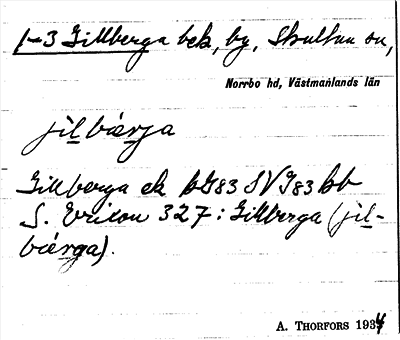 1-3 Gillberga bck, by, Skultuna sn,
Norrbo hd, Västmanlands län
jilbærja
Gillberga ek bG83 SVG83 bb
S. Ericson 327: Gillberga (jil-
bærga).
A. THORFORS 1934